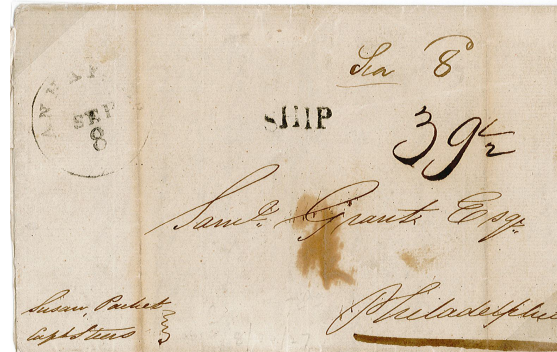 Sea 8
SEP
8
SHIP
39½
Saml. Grant Esqr.
Philadelphia
Susan, Packet
Capt Steers